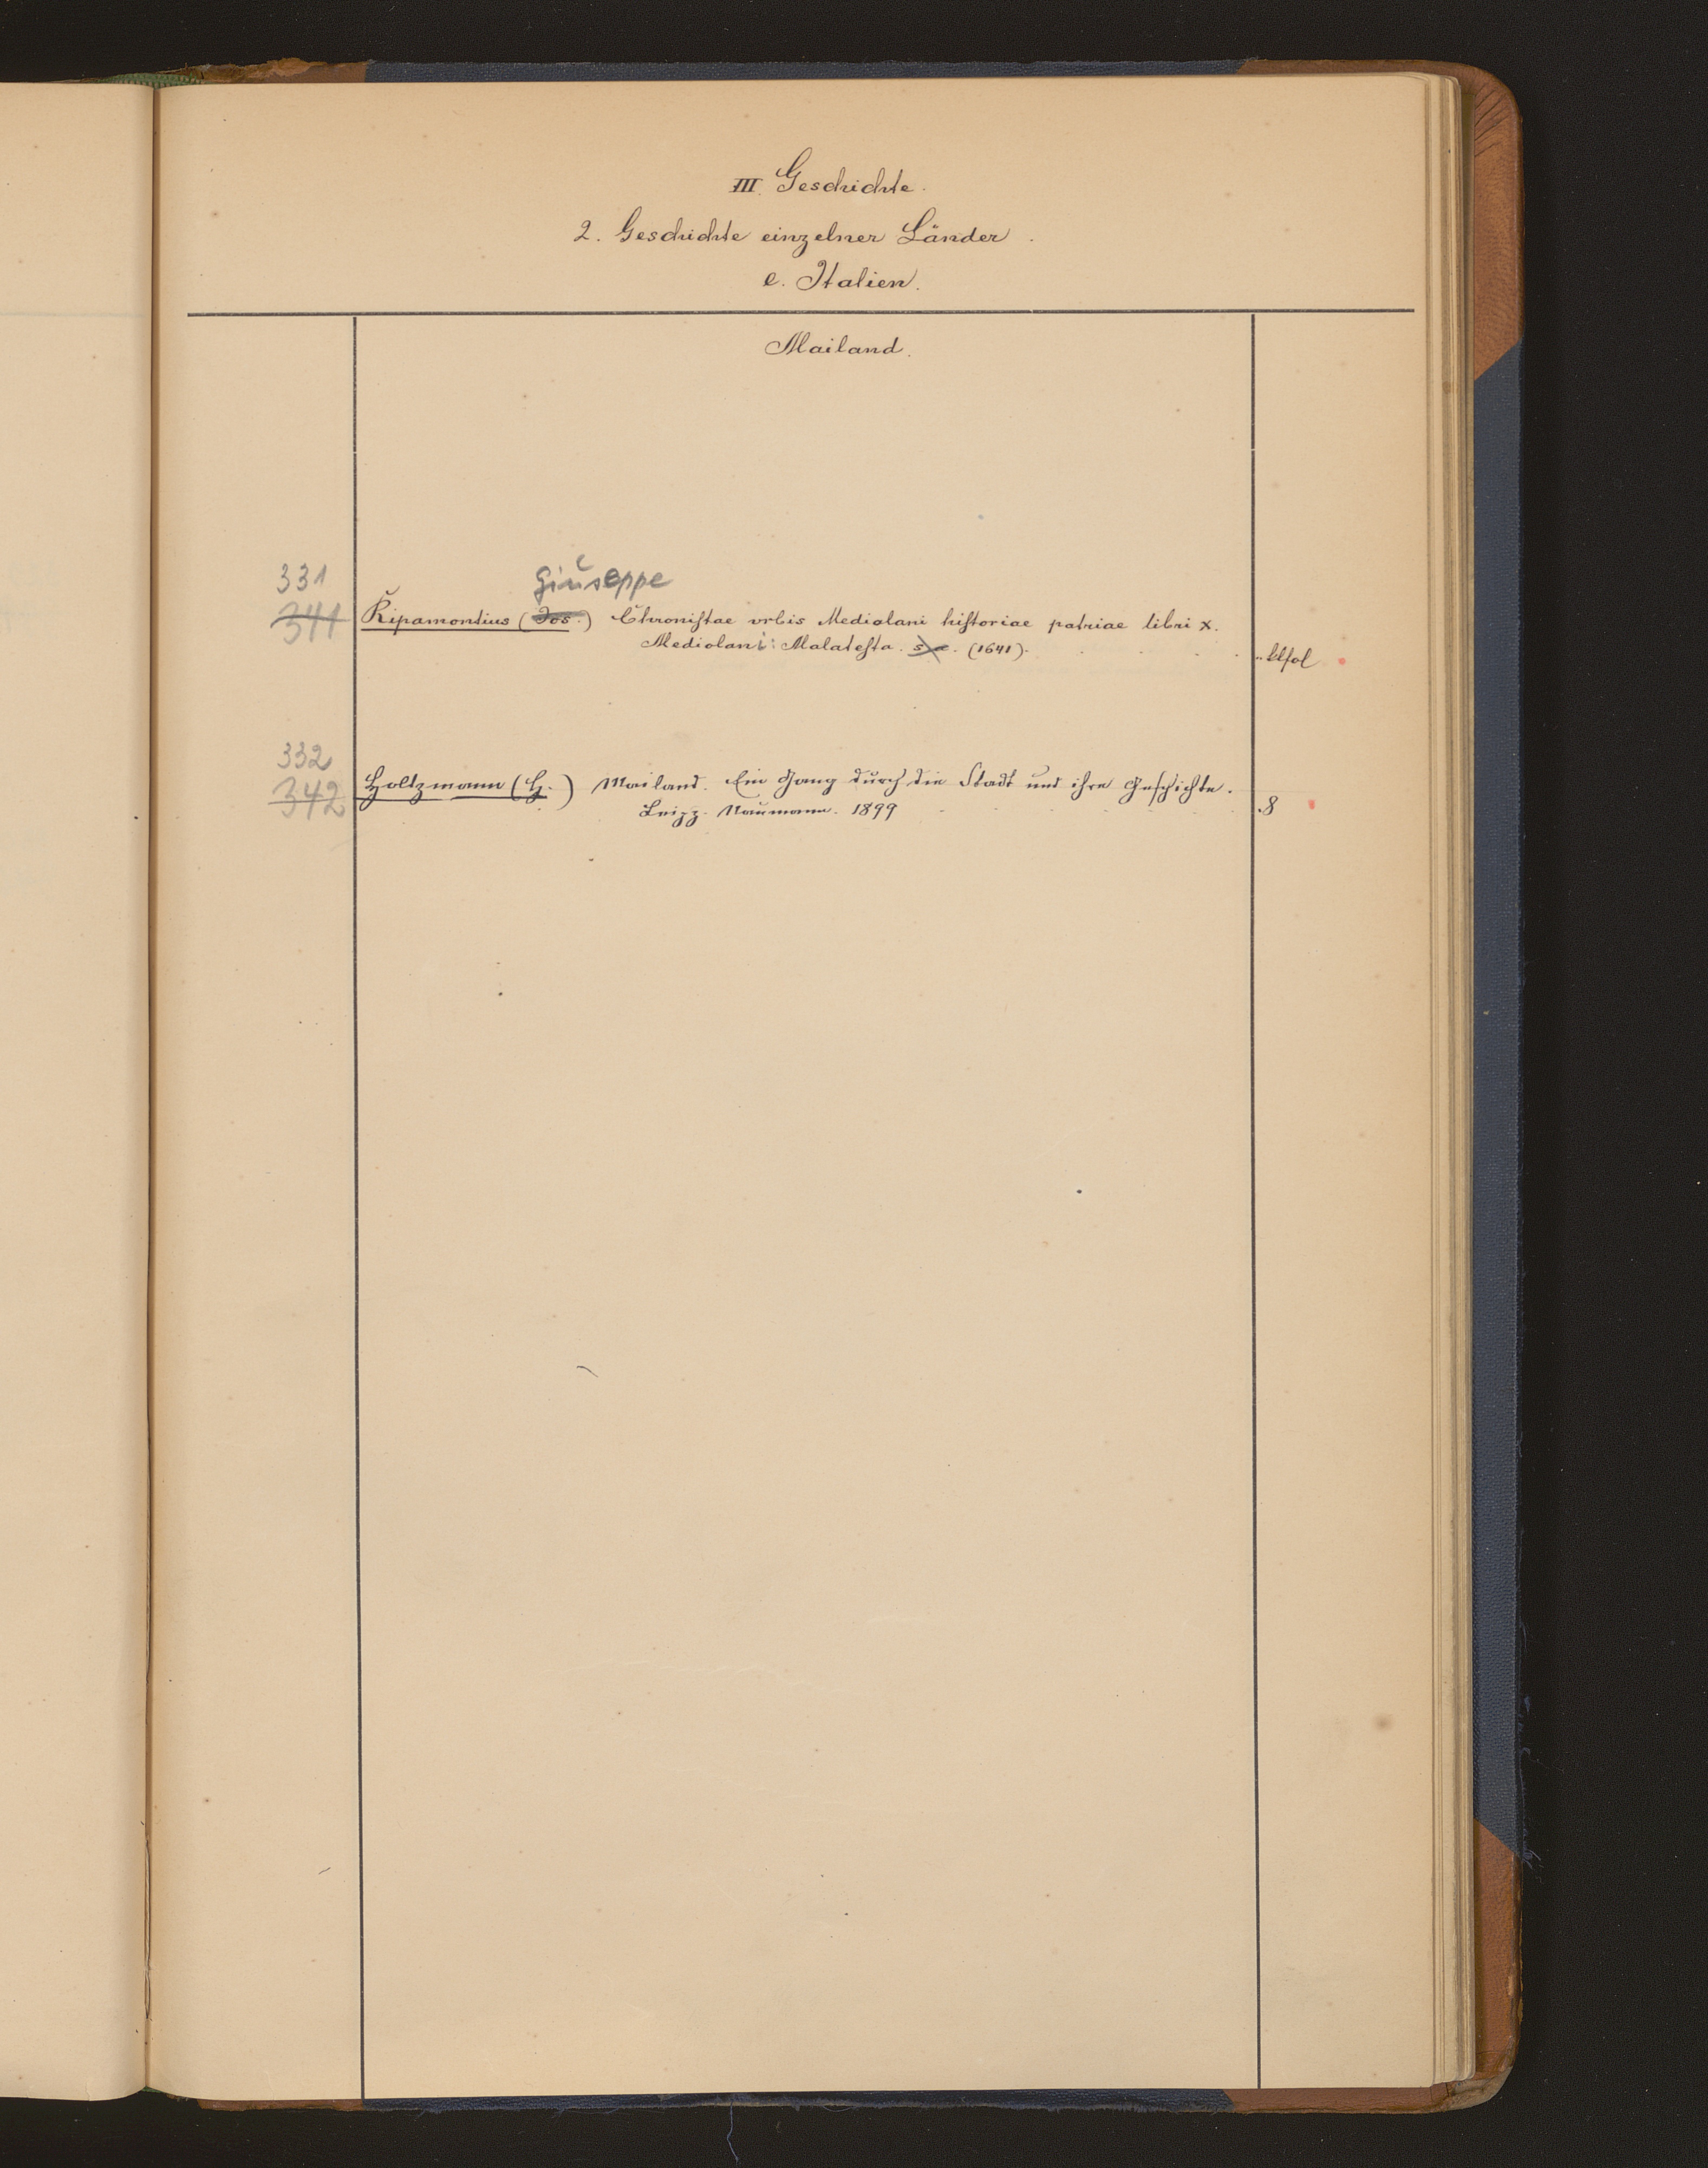 III. Geschichte.
2. Geschichte einzelner Länder.
e. Italien.
Mailand.
331
Giuseppe
341 Ripamontius (Jos.) Chronistae vrbis Mediolani historiae patriae libri x.
Mediolani: Malatesta. s. a. (1641). klfol
332
342 Holtzmann (H.) Mailand. Ein Gang durch die Stadt und ihre Geschichte.
Leipz. Naumann. 1899 8